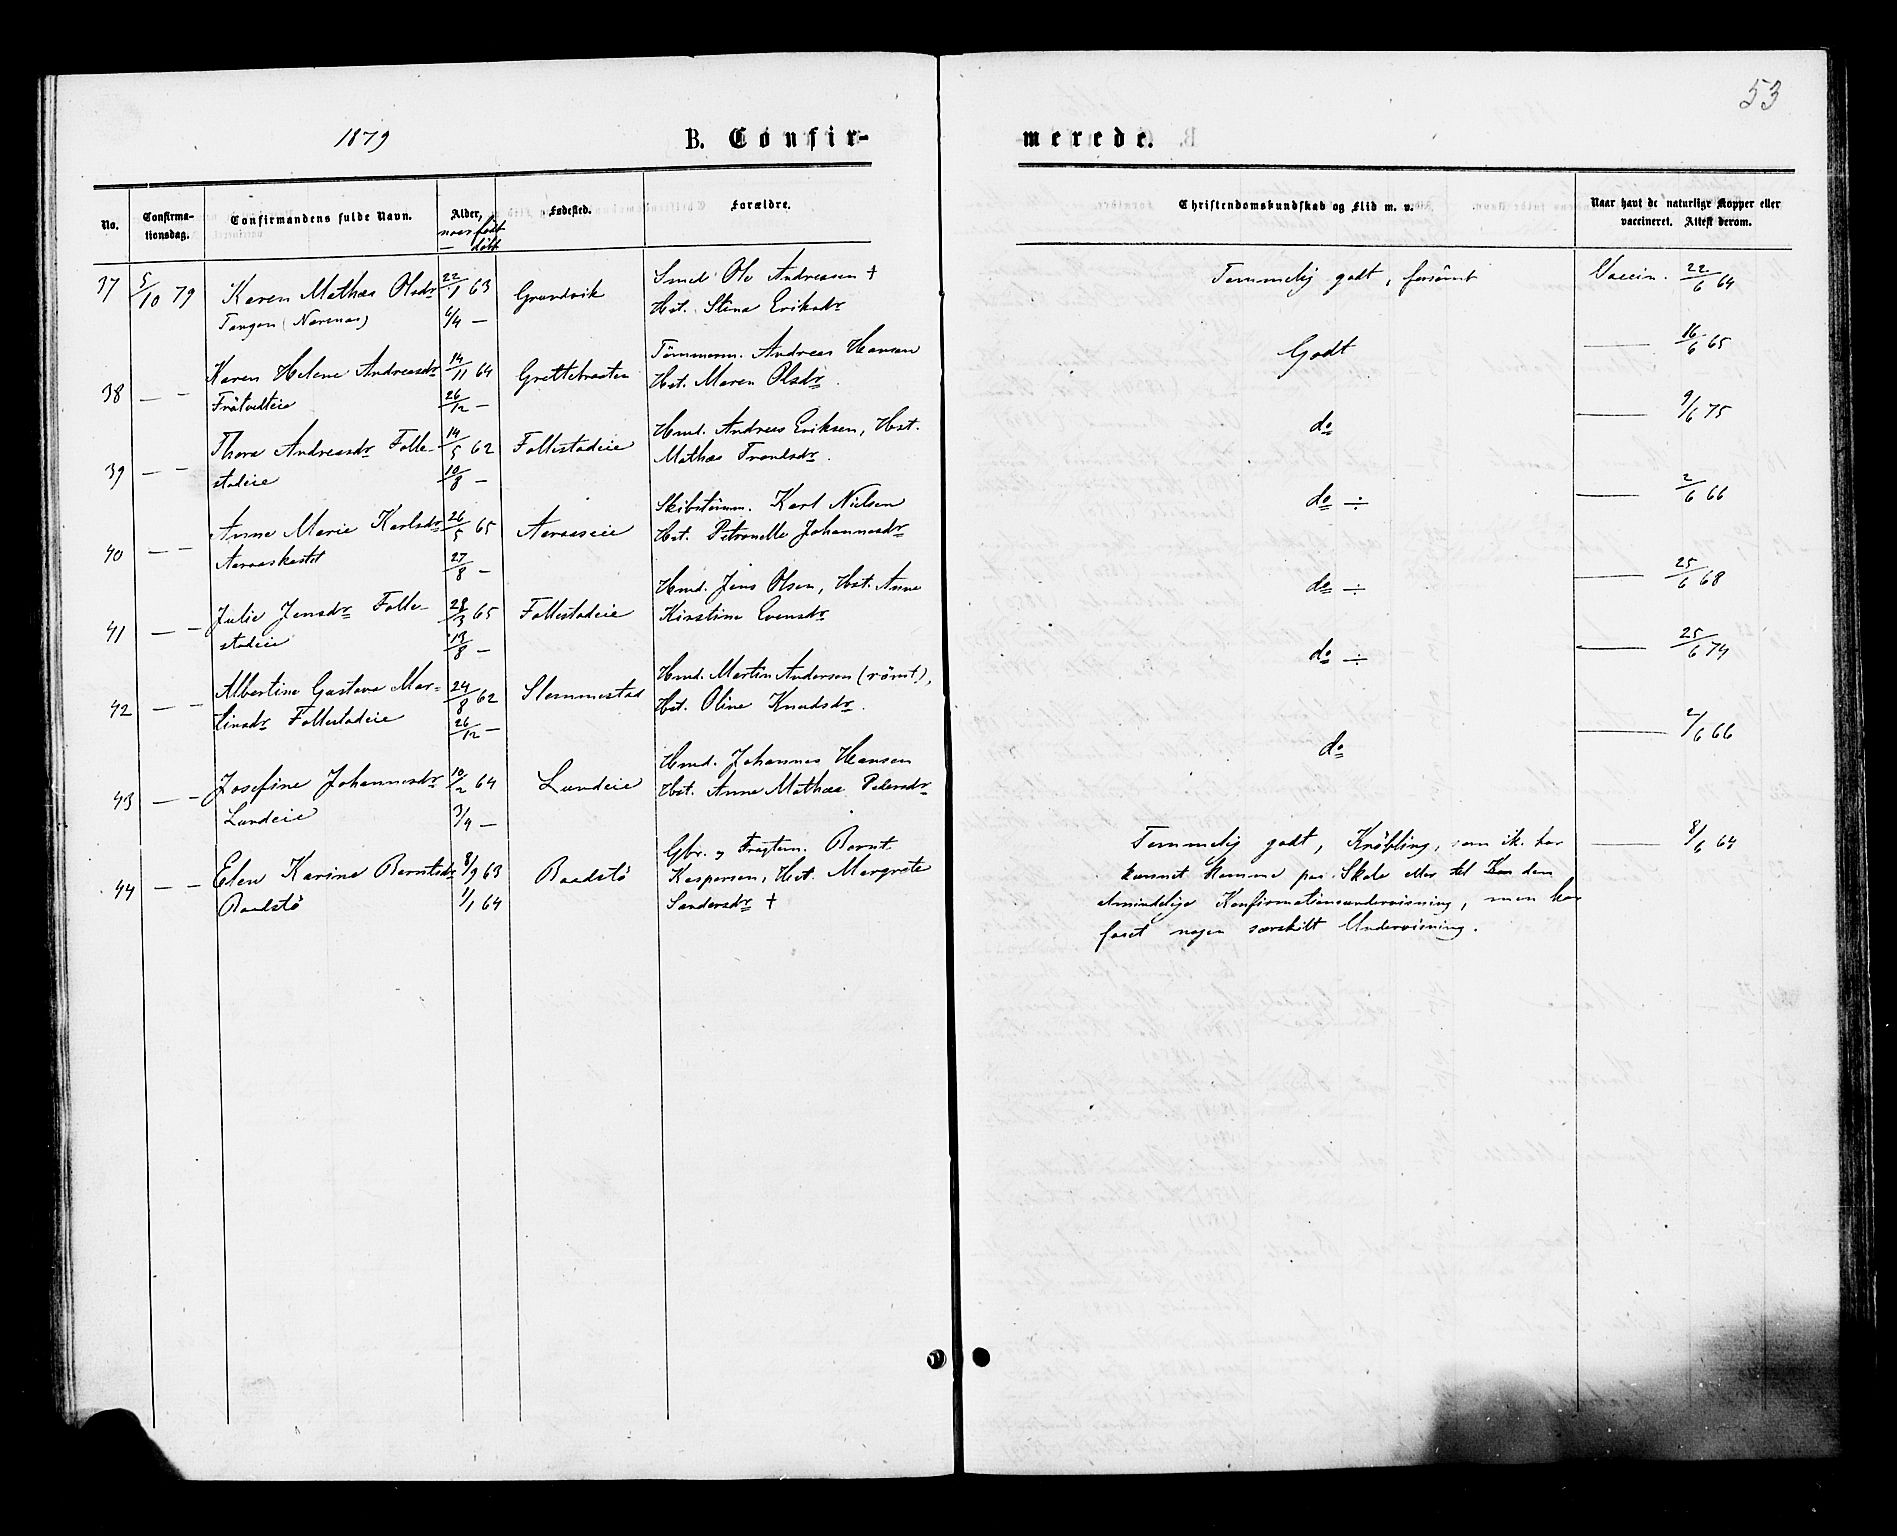 53
1879
B. Confir-
merede.
No.
Confirma-
tionsdag.
Confirmandens fulde Navn.
Alder,
naar født
— døbt
Fødested.
Forældre.
Christendomskundskab og Flid m. v.
Naar havt de naturlige Kopper eller
vaccineret. Attest derom.
37 5/10 79 Karen Mathea Olsdr 22/1 63 Grundvik Smed Ole Andreasen † Temmelig godt, forsömt Vaccin. 22/6 64
Tangen (Nærsnæs) 6/4 — Hst. Stina Eriksdr
38 — — Karen Helene Andreasdr 14/11 64 Grettebraaten Tömmerm. Andreas Hansen Godt — 16/6 65
Frötvedteie 26/12 — Hst. Maren Olsdr.
39 — — Thora Andreasdr Folle- 14/5 62 Follestadeie Hmd. Andreas Eriksen, Hst. do — 9/6 75
stadeie 10/8 — Mathea Trondsdr.
40 — — Anne Marie Karlsdr 26/5 65 Aaraaseie Skibstömm. Karl Nielsen do ÷ — 2/6 66
Aaraaskastet 27/8 — Hst. Petronelle Johannesdr
41 — — Julie Jensdr Folle- 28/3 65 Follestadeie Hmd. Jens Olsen, Hst. Anne do ÷ — 25/6 68
stadeie 13/8 — Kirstine Evensdr
42 — — Albertine Gustava Mar- 24/8 62 Slemmestad Hmd. Martin Andersen (römt), do ÷ — 25/6 74
tinsdr Follestadeie 26/12 — Hst. Oline Knudsdr.
43 — — Josefine Johannesdr 10/2 64 Lundeie Hmd. Johannes Hansen do — 2/6 66
Lundeie 3/4 — Hst. Anne Mathea Pedersdr
44 — — Elen Karine Berntsdr 8/9 63 Baadstö Gbr. og Fragtem. Bernt Temmelig godt, Kröbling, som ik. har — 8/6 64
Baadstö 1/1 64 Kaspersen, Hst. Margrete kunnet komme paa Skole eller til den
Sandersdr † almindelige Konfirmationsundervisning, men har
faaet nogen særskilt Undervisning.